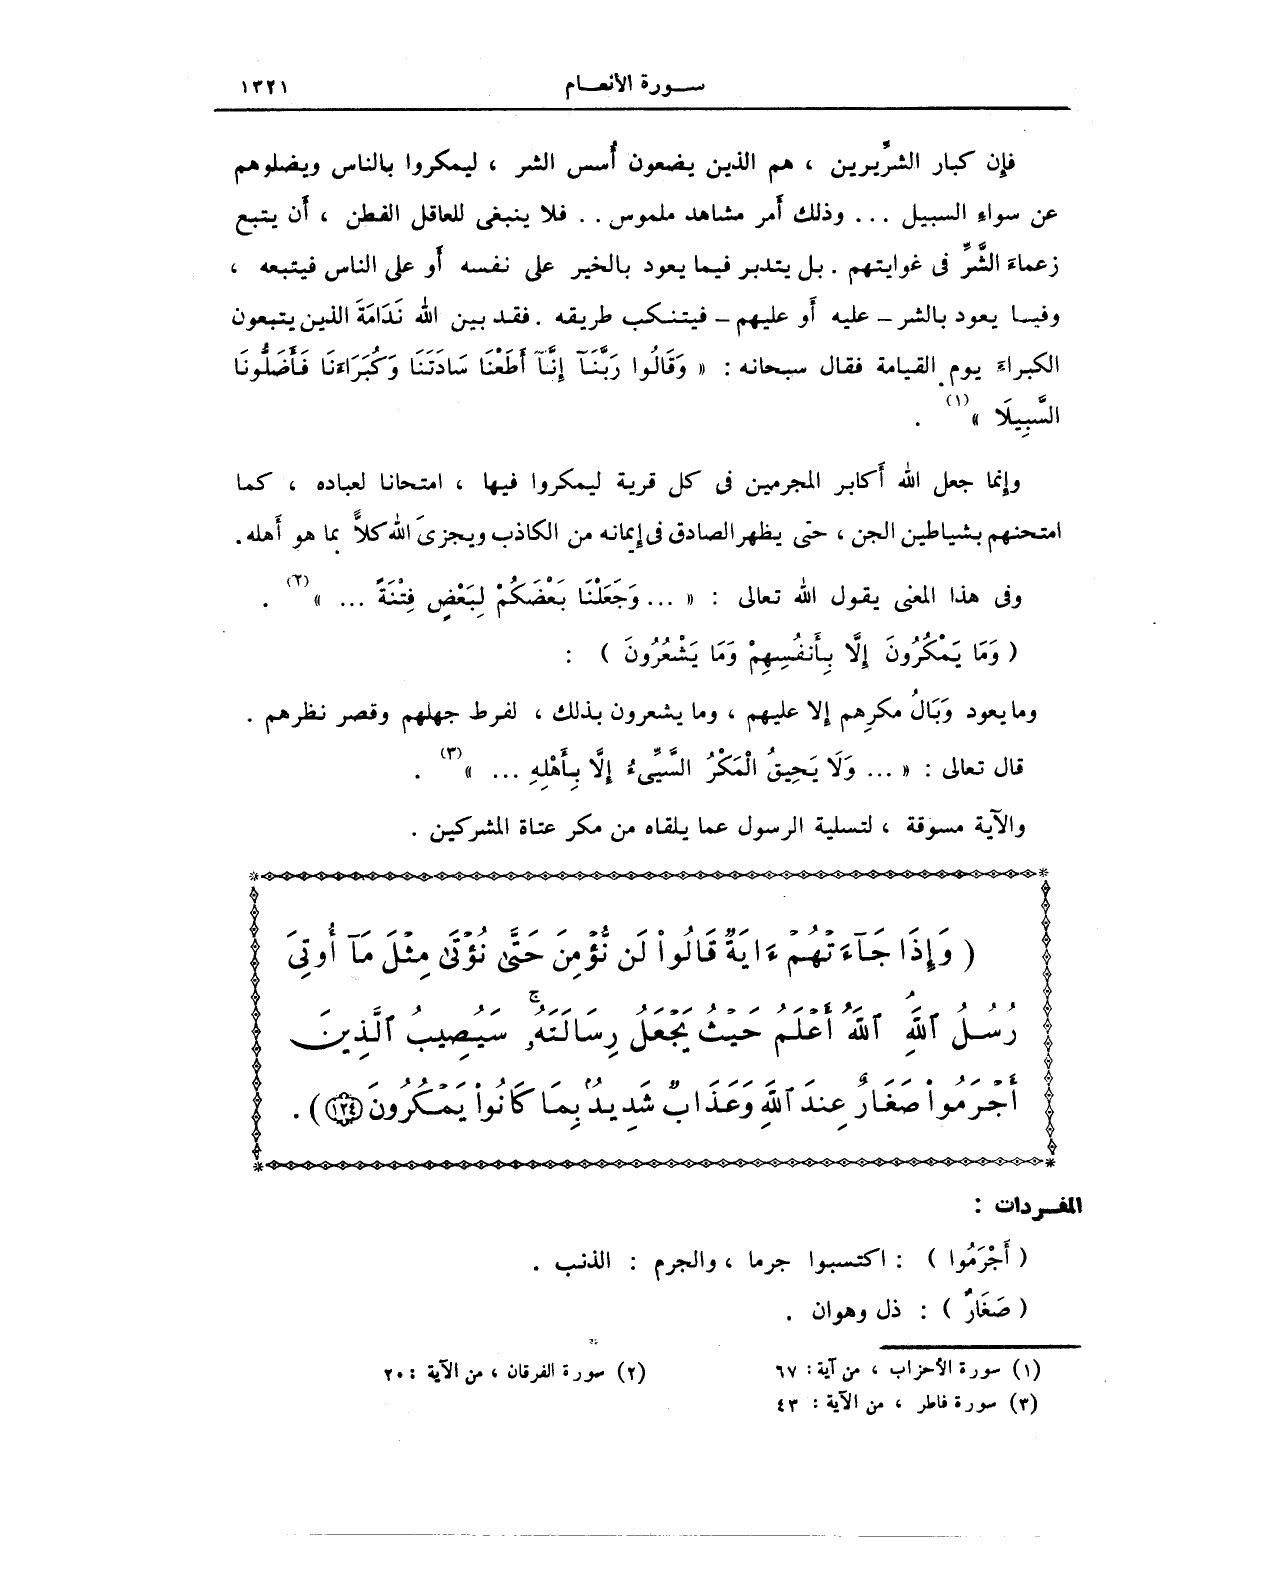 سورة الأنعام ١٣٢١
فإن كبار الشرِّيرين ، هم الذين يضعون أُسس الشر ، ليمكروا بالناس ويضلوهم
عن سواءِ السبيل ... وذلك أَمر مشاهد ملموس .. فلا ينبغى للعاقل الفطن ، أَن يتبع
زعماءَ الشَّرِّ فى غوايتهم . بل يتدبر فيما يعود بالخير على نفسه أَو على الناس فيتبعه ،
وفيما يعود بالشر – عليه أَو عليهم – فيتنكب طريقه . فقد بين الله نَدَامَةَ الذين يتبعون
الكبراءَ يوم القيامة فقال سبحانه : « وَقَالُوا رَبَّنَآ إِنَّآ أَطَعْنَا سَادَتَنَا وَكُبَرَاءَنَا فَأَضَلُّونَا
السَّبِيلَا » (١) .
وإنما جعل الله أَكابر المجرمين فى كل قرية ليمكروا فيها ، امتحانا لعباده ، كما
امتحنهم بشياطين الجن ، حتى يظهر الصادق فى إيمانه من الكاذب ويجزىَ الله كلاًّ بما هو أَهله .
وفى هذا المعنى يقول الله تعالى : « ... وَجَعَلْنَا بَعْضَكُمْ لِبَعْضٍ فِتْنَةً ... » (٢) .
( وَمَا يَمْكُرُونَ إِلَّا بِأَنفُسِهِمْ وَمَا يَشْعُرُونَ ) :
وما يعود وَبَالُ مكرِهم إلا عليهم ، وما يشعرون بذلك ، لفرط جهلهم وقصر نظرهم .
قال تعالى : « ... وَلَا يَحِيقُ الْمَكْرُ السَّيِّىءُ إِلَّا بِأَهْلِهِ ... » (٣) .
والآية مسوقة ، لتسلية الرسول عما يلقاه من مكر عتاة المشركين .
( وَإِذَا جَآءَتْهُمْ ءَايَةٌ قَالُوا۟ لَن نُّؤْمِنَ حَتَّىٰ نُؤْتَىٰ مِثْلَ مَآ أُوتِىَ
رُسُلُ ٱللَّهِ ۘ ٱللَّهُ أَعْلَمُ حَيْثُ يَجْعَلُ رِسَالَتَهُۥ ۚ سَيُصِيبُ ٱلَّذِينَ
أَجْرَمُوا۟ صَغَارٌ عِندَ ٱللَّهِ وَعَذَابٌ شَدِيدٌۢ بِمَا كَانُوا۟ يَمْكُرُونَ ١٢٤ ) .
المفردات :
( أَجْرَمُوا ) : اكتسبوا جرما ، والجرم : الذنب .
( صَغَارٌ ) : ذل وهوان .
(١) سورة الأحزاب ، من آية : ٦٧ (٢) سورة الفرقان ، من الآية : ٢٠
(٣) سورة فاطر ، من الآية : ٤٣